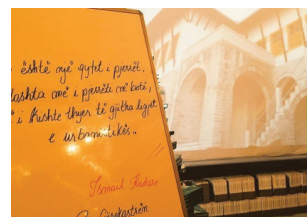 është një qytet i pjerrët,
ndashta më i pjerrëti në botë,
i kishte thyer të gjitha ligjet
e urbanistikës..
Ismail Kadare
Gjirokastrën